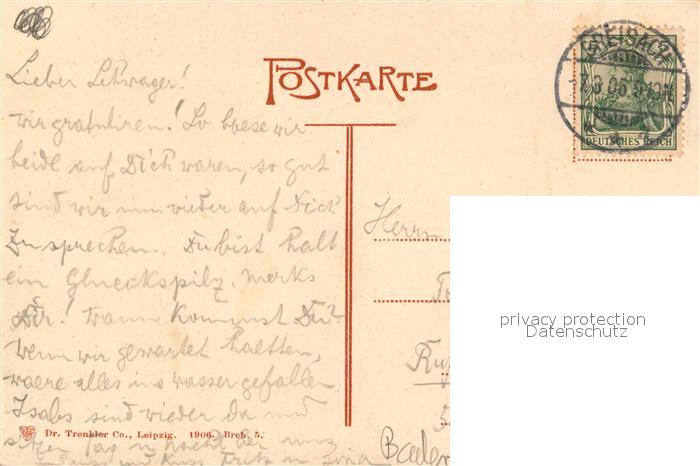 POSTKARTE
DEUTSCHES REICH
Lieber Schwager!
wir gratuliren! So boese wir
beide auf Dich waren, so gut
sind wir nun wieder auf Dich
zu sprechen. Du bist halt
ein Glueckspilz. Merks
Dir! Wann kommst Du?
Wenn wir gewartet haetten,
waere alles ins wasser gefallen
sind wieder da und
Herrn
privacy protection
Datenschutz
Dr. Trenkler Co., Leipzig. 1906. Brch. 5.
Baden